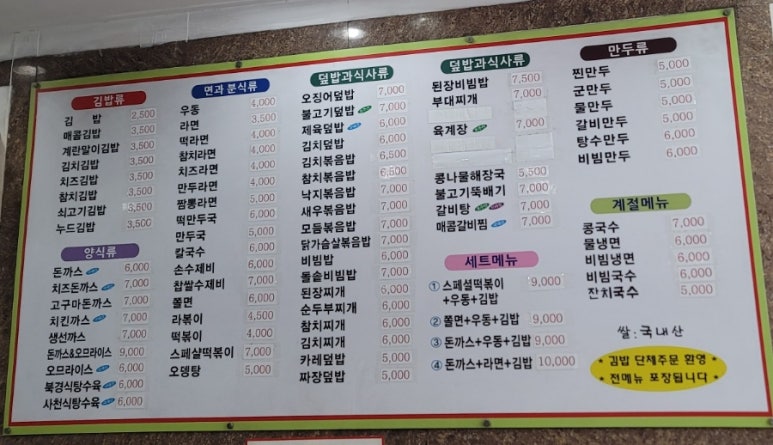 김밥류
김 밥 2,500
매콤김밥 3,500
계란말이김밥 3,500
김치김밥 3,500
치즈김밥 3,500
참치김밥 3,500
쇠고기김밥 3,500
누드김밥 3,500
양식류
돈까스 6,000
치즈돈까스 7,000
고구마돈까스 7,000
치킨까스 7,000
생선까스 7,000
돈까스&오므라이스 9,000
오므라이스 6,000
북경식탕수육 6,000
사천식탕수육 6,000
면과 분식류
우동 4,000
라면 3,500
떡라면 4,000
참치라면 4,000
치즈라면 4,000
만두라면 4,000
짬뽕라면 5,000
떡만두국 6,000
만두국 5,000
칼국수 6,000
손수제비 6,000
찹쌀수제비 7,000
쫄면 6,000
라볶이 4,500
떡볶이 4,000
스페샬떡볶이 7,000
오뎅탕 5,000
덮밥과식사류
오징어덮밥 7,000
불고기덮밥 7,000
제육덮밥 6,000
김치덮밥 6,000
김치볶음밥 6,500
참치볶음밥 6,500
낙지볶음밥 7,000
새우볶음밥 7,000
모듬볶음밥 7,000
닭가슴살볶음밥 7,000
비빔밥 6,000
돌솥비빔밥 7,000
된장찌개 6,000
순두부찌개 6,000
참치찌개 6,000
김치찌개 6,000
카레덮밥 5,000
짜장덮밥 5,000
덮밥과식사류
된장비빔밥 7,500
부대찌개 7,000
육계장 7,000
콩나물해장국 5,500
불고기뚝배기 7,000
갈비탕 7,000
매콤갈비찜 7,000
세트메뉴
① 스페셜떡볶이 9,000
+우동+김밥
② 쫄면+우동+김밥 9,000
③ 돈까스+우동+김밥 9,000
④ 돈까스+라면+김밥 10,000
만두류
찐만두 5,000
군만두 5,000
물만두 5,000
갈비만두 5,000
탕수만두 6,000
비빔만두 6,000
계절메뉴
콩국수 7,000
물냉면 6,000
비빔냉면 6,000
비빔국수 6,000
잔치국수 5,000
쌀:국내산
* 김밥 단체주문 환영 *
* 전메뉴 포장됩니다 *